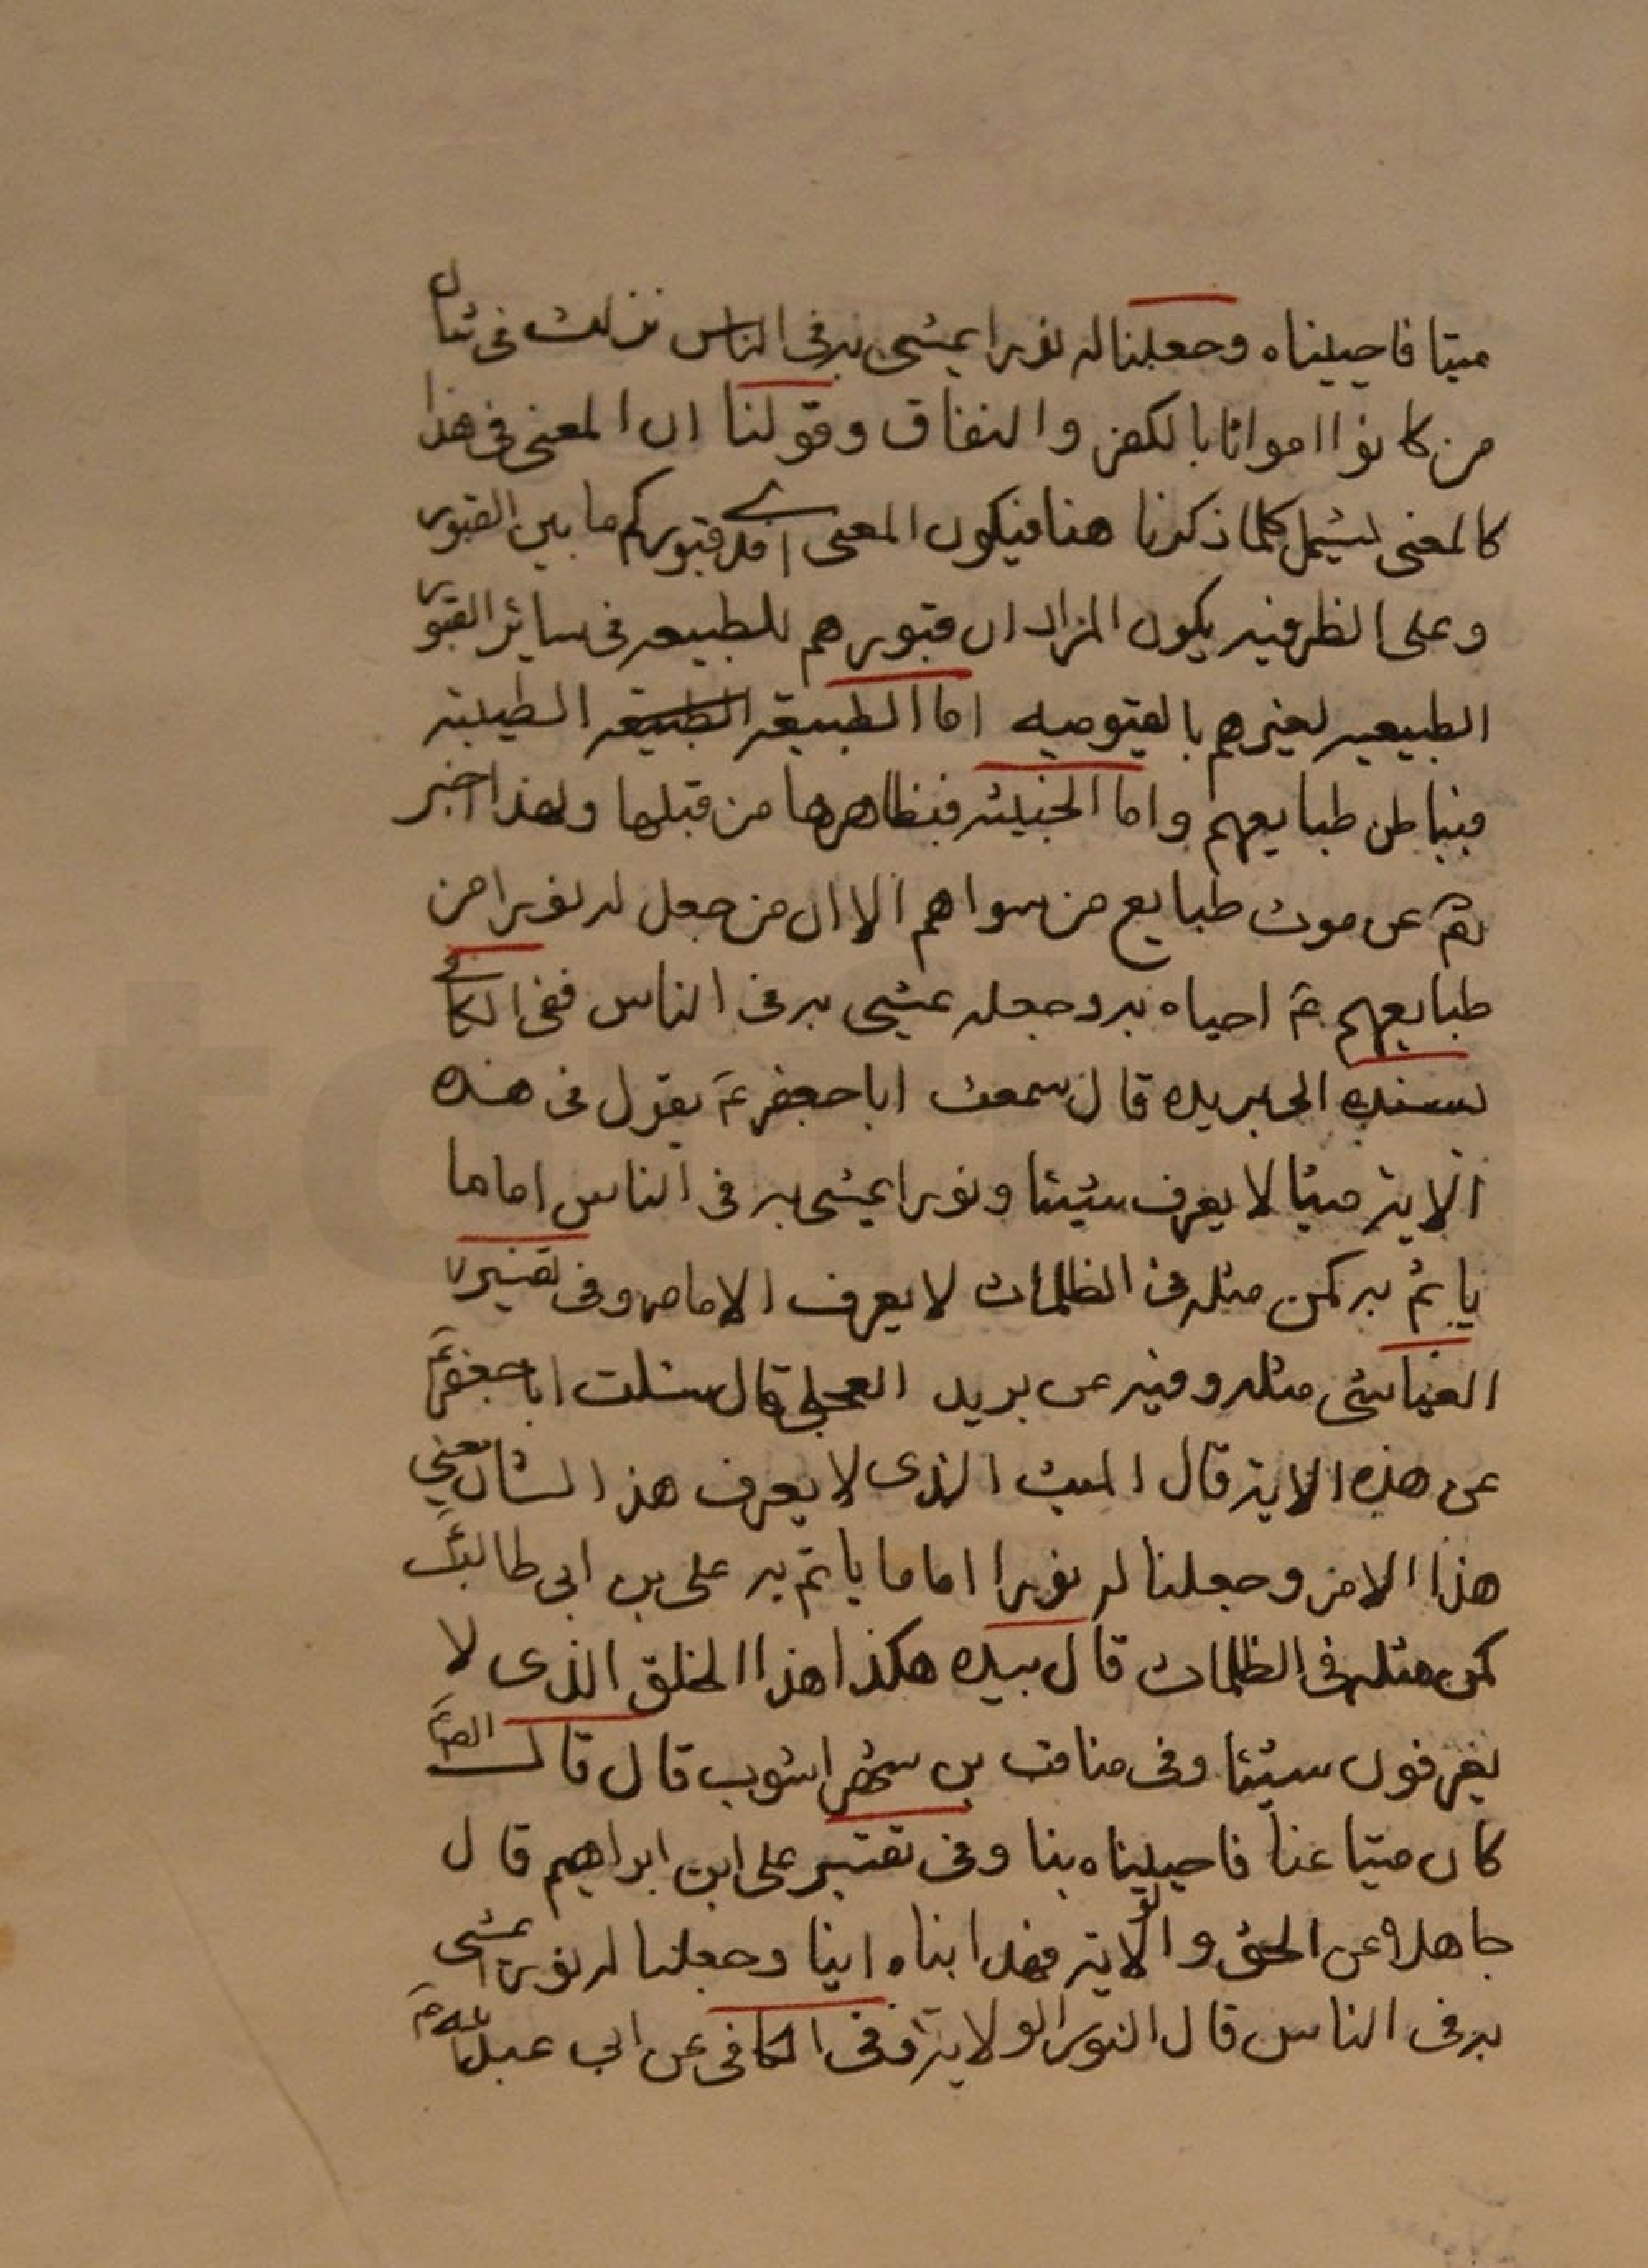 ميتا فاحييناه وجعلنا له نورا يمشى به فى الناس نزلت فى شان
من كانوا امواتا بالكفر والنفاق وقولنا ان المعنى فى هذا
كالمعنى ليشمل كلما ذكرنا هنا فيكون المعنى قبوركم ما بين القبور
وعلى الظرفيه يكون المراد ان قبورهم للطبيعه فى سائر القبور
الطبيعيه لغيرهم بالقيوميه اما الطبيعة الطبيعه الطيبة
فبباطن طبايعهم واما الخبيثه فبظاهرها من قبلها ولهذا اخبر
تع عن موت طبايع من سواهم الا ان من جعل له نورا من
طبايعهم ع احياه به وجعله يمشى به فى الناس ففى الكافى
بسنده الى بريده قال سمعت ابا جعفر ع يقول فى هذه
الاية ميتا لا يعرف شيئا ونورا يمشى به فى الناس اماما
ياتم به كمن مثله فى الظلمات لا يعرف الامام وفى تفسير
العياشى مثله وفيه عن بريد العجلى قال سئلت ابا جعفر ع
عن هذه الاية قال الميت الذى لا يعرف هذا الشان يعني
هذا الامر وجعلنا له نورا اماما ياتم به على بن ابى طالب ع
كمن مثله فى الظلمات قال بيده هكذا هذا الخلق الذى لا
يعرفون شيئا وفى مناقب بن شهر اشوب قال قال الص ع
كان ميتا عنا فاحييناه بنا وفى تفسير على ابن ابراهيم قال
جاهلا عن الحق والولاية فهديناه الينا وجعلنا له نورا يمشى
به فى الناس قال النور الولاية وفى الكافى عن ابى عبدالله ع